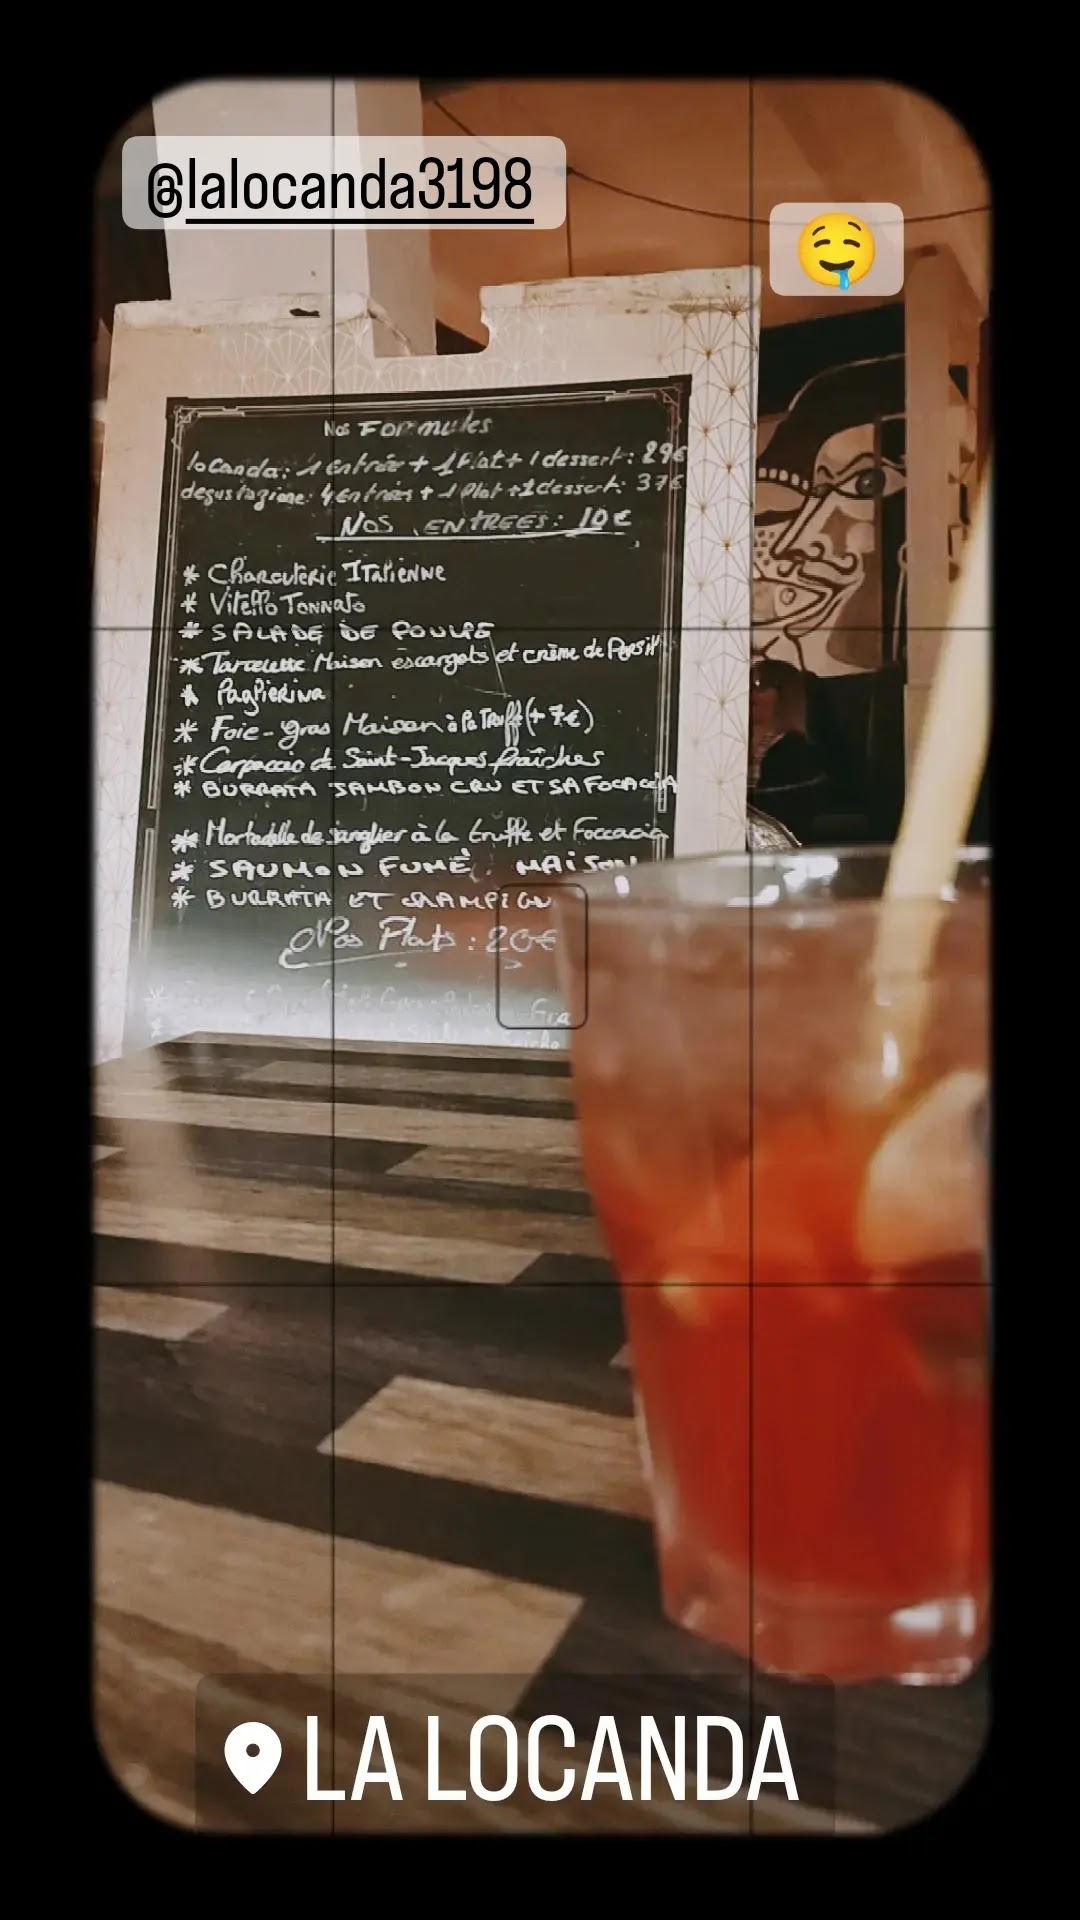 @lalocanda3198
Nos Formules
locanda: 1 entrée + 1 Plat + 1 dessert: 29€
degustazione: 4 entrées + 1 Plat + 1 dessert: 37€
NOS ENTREES: 10€
* Charcuterie ITaliENNe
* Vitello Tonnato
* SALADE DE POULPE
* Tartelette Maison escargots et crème de Persil
* PaglieriNa
* Foie-gras Maison à la Truffe (+ 7€)
* Carpaccio de Saint-Jacques fraîches
* BURRATA JAMBON CRU ET SA FOCACCIA
* Mortadelle de sanglier à la truffe et Foccacia
* SAUMON FUMÉ MAISON
* BURRATA ET CHAMPIGN
Nos Plats: 20€
LA LOCANDA